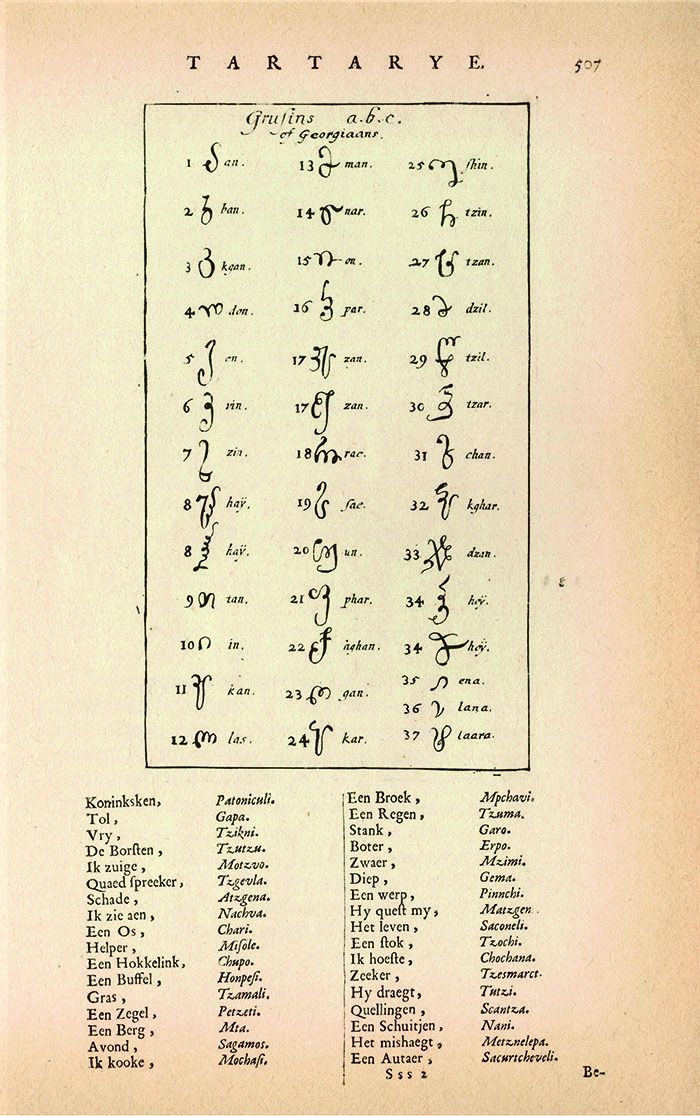 TARTARYE. 507
Grusins a.b.c.
of Georgiaans.
1 an.
2 ban.
3 kgan.
4 don.
5 en.
6 vin.
7 zin.
8 haÿ.
8 haÿ.
9 tan.
10 in.
11 kan.
12 las.
13 man.
14 nar.
15 on.
16 par.
17 zan.
17 zan.
18 rae.
19 ſae.
20 un.
21 phar.
22 ṅghan.
23 gan.
24 kar.
25 ſhin.
26 tzin.
27 tzan.
28 dzil.
29 tzil.
30 tzar.
31 chan.
32 kghar.
33 dzan.
34 heÿ.
34 hoÿ.
35 ena.
36 lana.
37 laara.
Koninksken, Patoniculi.
Tol, Gapa.
Vry, Tzikni.
De Borſten, Tzutzu.
Ik zuige, Motzvo.
Quaed ſpreeker, Tzgevla.
Schade, Atzgena.
Ik zie aen, Nachva.
Een Os, Chari.
Helper, Miſole.
Een Hokkelink, Chupo.
Een Buffel, Honpeſi.
Gras, Tzamali.
Een Zegel, Petzeti.
Een Berg, Mta.
Avond, Sagamos.
Ik kooke, Mochaſi.
Een Broek, Mpchavi.
Een Regen, Tzuma.
Stank, Garo.
Boter, Erpo.
Zwaer, Mzimi.
Diep, Gema.
Een werp, Pinnchi.
Hy queſt my, Matzgen.
Het leven, Saconeli.
Een ſtok, Tzochi.
Ik hoeſte, Chochana.
Zeeker, Tzesmarct.
Hy draegt, Tutzi.
Quellingen, Scantza.
Een Schuitjen, Nani.
Het mishaegt, Metznelepa.
Een Autaer, Sacurtcheveli.
Sss 2 Be-